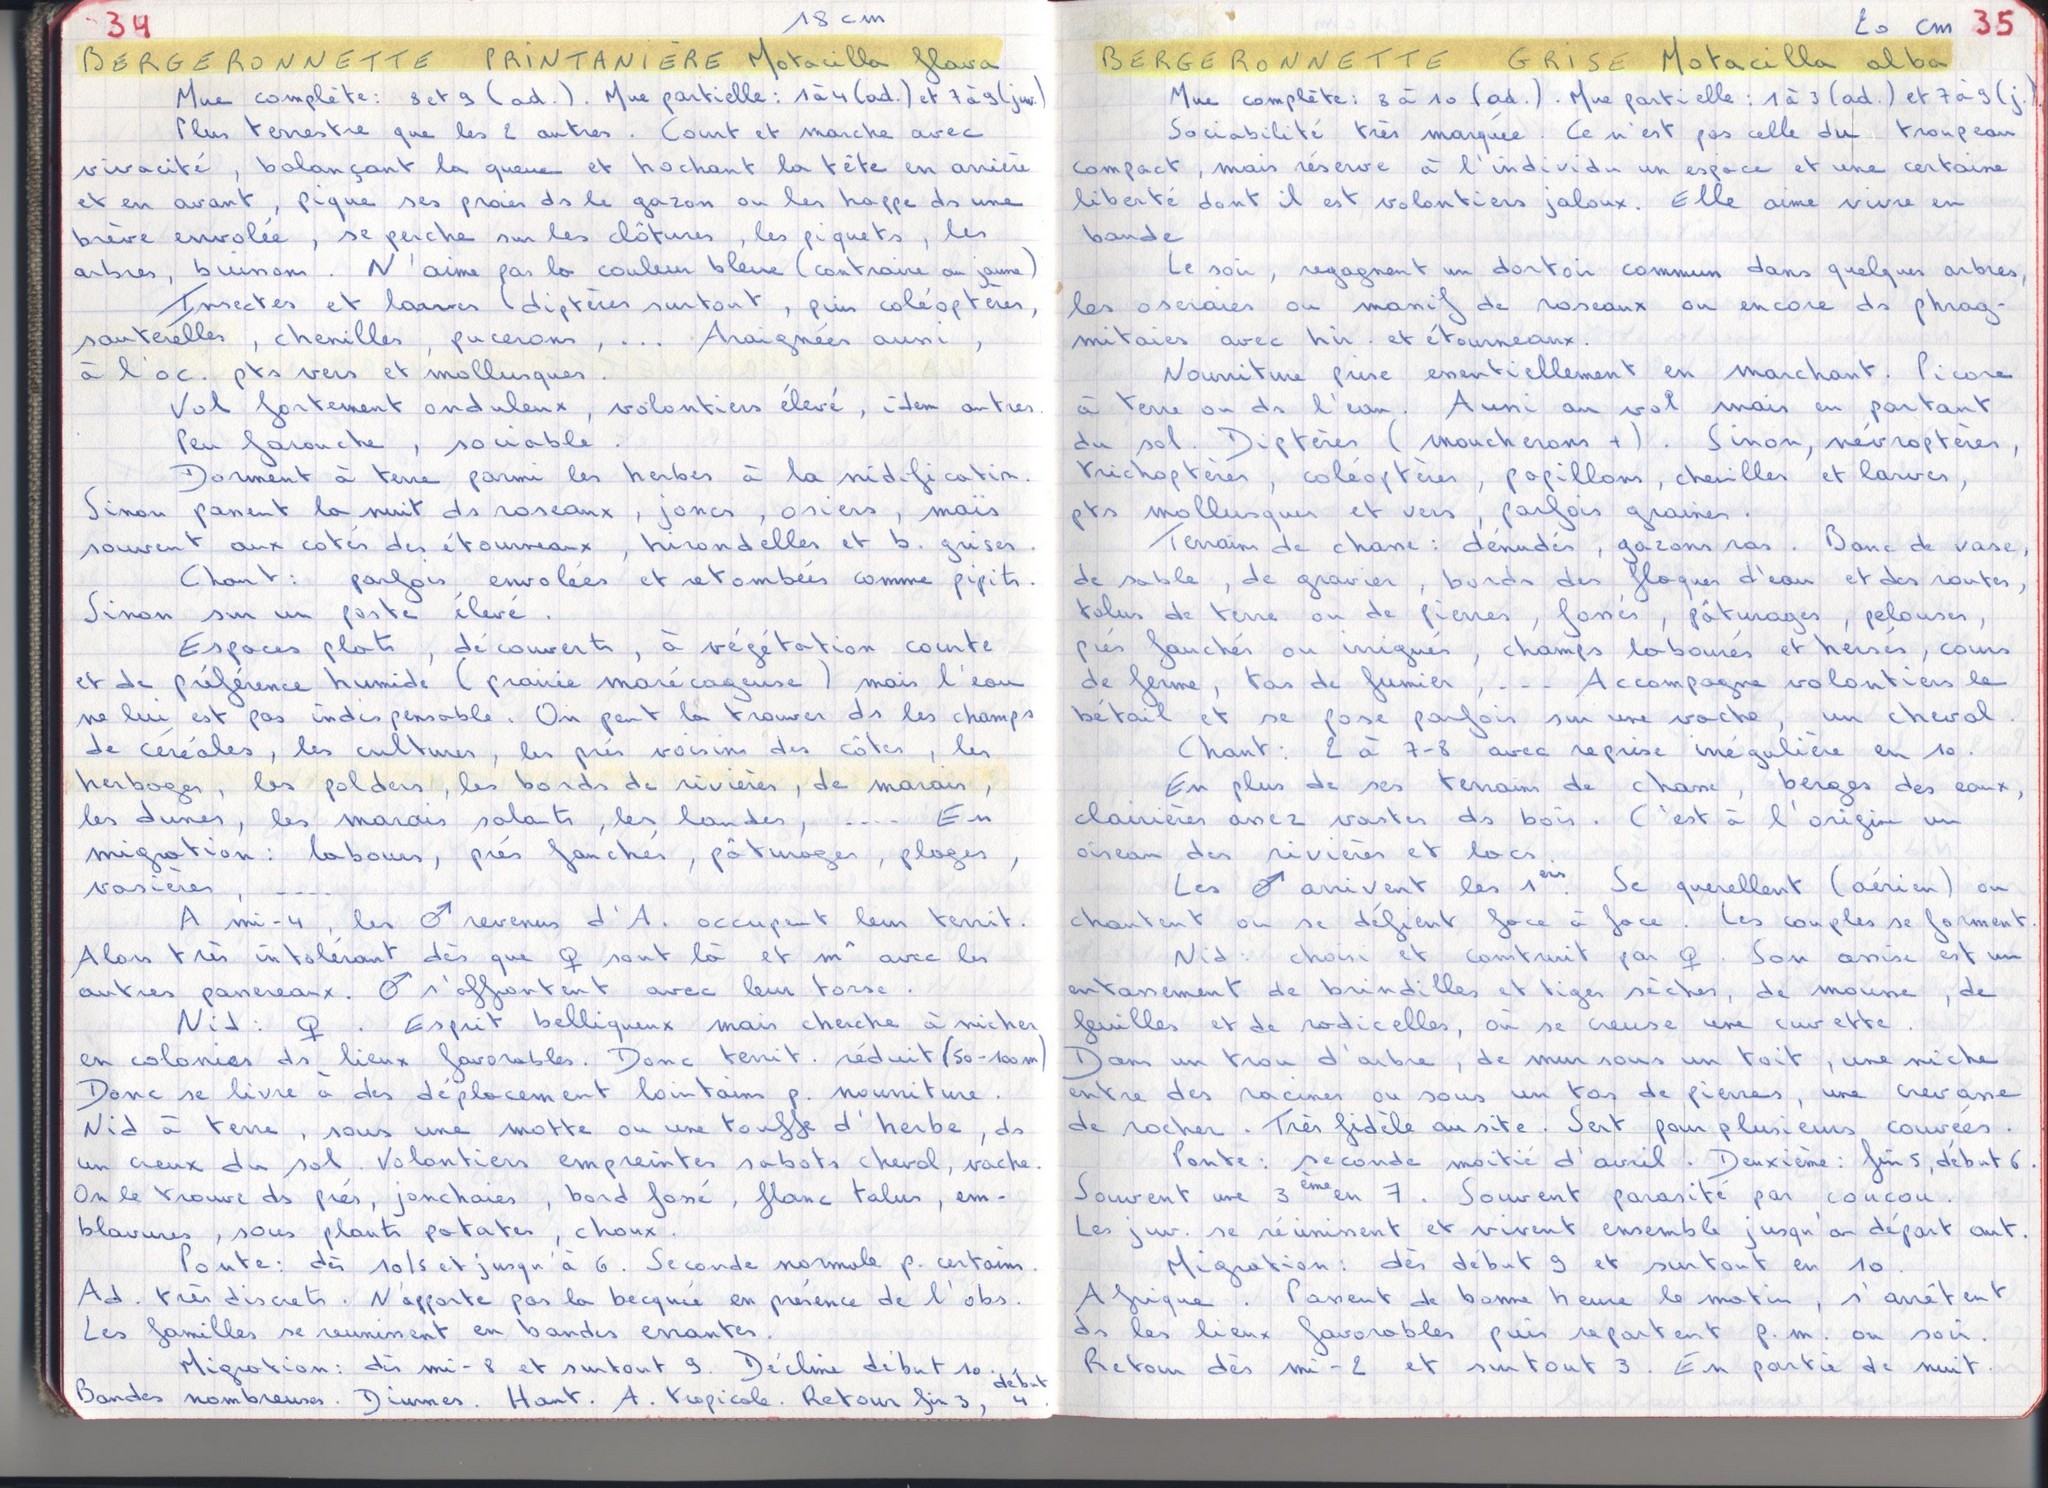 34
18 cm
BERGERONNETTE PRINTANIÈRE Motacilla flava
Mue complète : 8 et 9 (ad.). Mue partielle : 1 à 4 (ad.) et 7 à 9 (juv.)
Plus terrestre que les 2 autres. Court et marche avec
vivacité, balançant la queue et hochant la tête en arrière
et en avant, pique ses proies ds le gazon ou les happe ds une
brève envolée, se perche sur les clôtures, les piquets, les
arbres, buissons. N'aime pas la couleur bleue (contraire au jaune)
Insectes et larves (diptères surtout, puis coléoptères,
sauterelles, chenilles, pucerons, ... Araignées aussi,
à l'oc. pts vers et mollusques.
Vol fortement onduleux, volontiers élevé, idem autres.
Peu farouche, sociable.
Dorment à terre parmi les herbes à la nidification.
Sinon passent la nuit ds roseaux, joncs, osiers, maïs
souvent aux cotés des étourneaux, hirondelles et b. grises.
Chant : parfois envolées et retombées comme pipits.
Sinon sur un poste élevé.
Espaces plats, découverts, à végétation courte
et de préférence humide (prairie marécageuse) mais l'eau
ne lui est pas indispensable. On peut la trouver ds les champs
de céréales, les cultures, les prés voisins des côtes, les
herbages, les polders, les bords de rivières, de marais,
les dunes, les marais salants, les landes, .... En
migration : labours, prés fauchés, pâturages, plages,
vasières, ....
A mi-4, les ♂ revenus d'A. occupent leur territ.
Alors très intolérant dès que ♀ sont là et m^ avec les
autres passereaux. ♂ s'affrontent avec leur torse.
Nid : ♀. Esprit belliqueux mais cherche à nicher
en colonies ds lieux favorables. Donc territ. réduit (50-100m)
Donc se livre à des déplacement lointains p. nourriture.
Nid à terre, sous une motte ou une touffe d'herbe, ds
un creux du sol. Volontiers empreintes sabots cheval, vache.
On le trouve ds prés, jonchaies, bord fossé, flanc talus, em-
blavures, sous plants patates, choux.
Ponte : dès 10/5 et jusqu'à 6. Seconde normale p. certains.
Ad. très discrets. N'apporte pas la becquée en présence de l'obs.
Les familles se reunissent en bandes errantes.
Migration : dès mi-8 et surtout 9. Décline début 10.
Bandes nombreuses. Diurnes. Haut. A. tropicale. Retour fin 3, début 4.
20 cm 35
BERGERONNETTE GRISE Motacilla alba
Mue complète : 8 à 10 (ad.). Mue partielle : 1 à 3 (ad.) et 7 à 9 (j.)
Sociabilité très marquée. Ce n'est pas celle du troupeau
compact, mais réserve à l'individu un espace et une certaine
liberté dont il est volontiers jaloux. Elle aime vivre en
bande
Le soir, regagnent un dortoir commun dans quelques arbres,
les oseraies ou massif de roseaux ou encore ds phrag-
mitaies avec hir. et étourneaux.
Nourriture prise essentiellement en marchant. Picore
à terre ou ds l'eau. Aussi au vol mais en partant
du sol. Diptères (moucherons +). Sinon, névroptères,
trichoptères, coléoptères, papillons, chenilles et larves,
pts mollusques et vers, parfois graines.
Terrains de chasse : dénudés, gazons ras. Banc de vase,
de sable, de gravier, bords des flaques d'eau et des routes,
talus de terre ou de pierres, fossés, pâturages, pelouses,
prés fauchés ou irrigués, champs labourés et hersés, cours
de ferme, tas de fumier, .... Accompagne volontiers le
bétail et se pose parfois sur une vache, un cheval.
Chant : 2 à 7-8 avec reprise irrégulière en 10.
En plus de ses terrains de chasse, berges des eaux,
clairières assez vastes ds bois. C'est à l'origine un
oiseau des rivières et lacs.
Les ♂ arrivent les 1ers. Se querellent (aérien) ou
chantent ou se défient face à face. Les couples se forment.
Nid : choisi et construit par ♀. Son assise est un
entassement de brindilles et tiges sèches, de mousse, de
feuilles et de radicelles, où se creuse une cuvette.
Dans un trou d'arbre, de mur sous un toit, une niche
entre des racines ou sous un tas de pierres, une crevasse
de rocher. Très fidèle au site. Sert pour plusieurs couvées.
Ponte : seconde moitié d'avril. Deuxième : fin 5, début 6.
Souvent une 3ème en 7. Souvent parasité par coucou.
Les juv. se réunissent et vivent ensemble jusqu'au départ aut.
Migration : dès début 9 et surtout en 10.
Afrique. Passent de bonne heure le matin, s'arrêtent
ds les lieux favorables puis repartent p.m. ou soir.
Retour dès mi-2 et surtout 3. En partie de nuit.